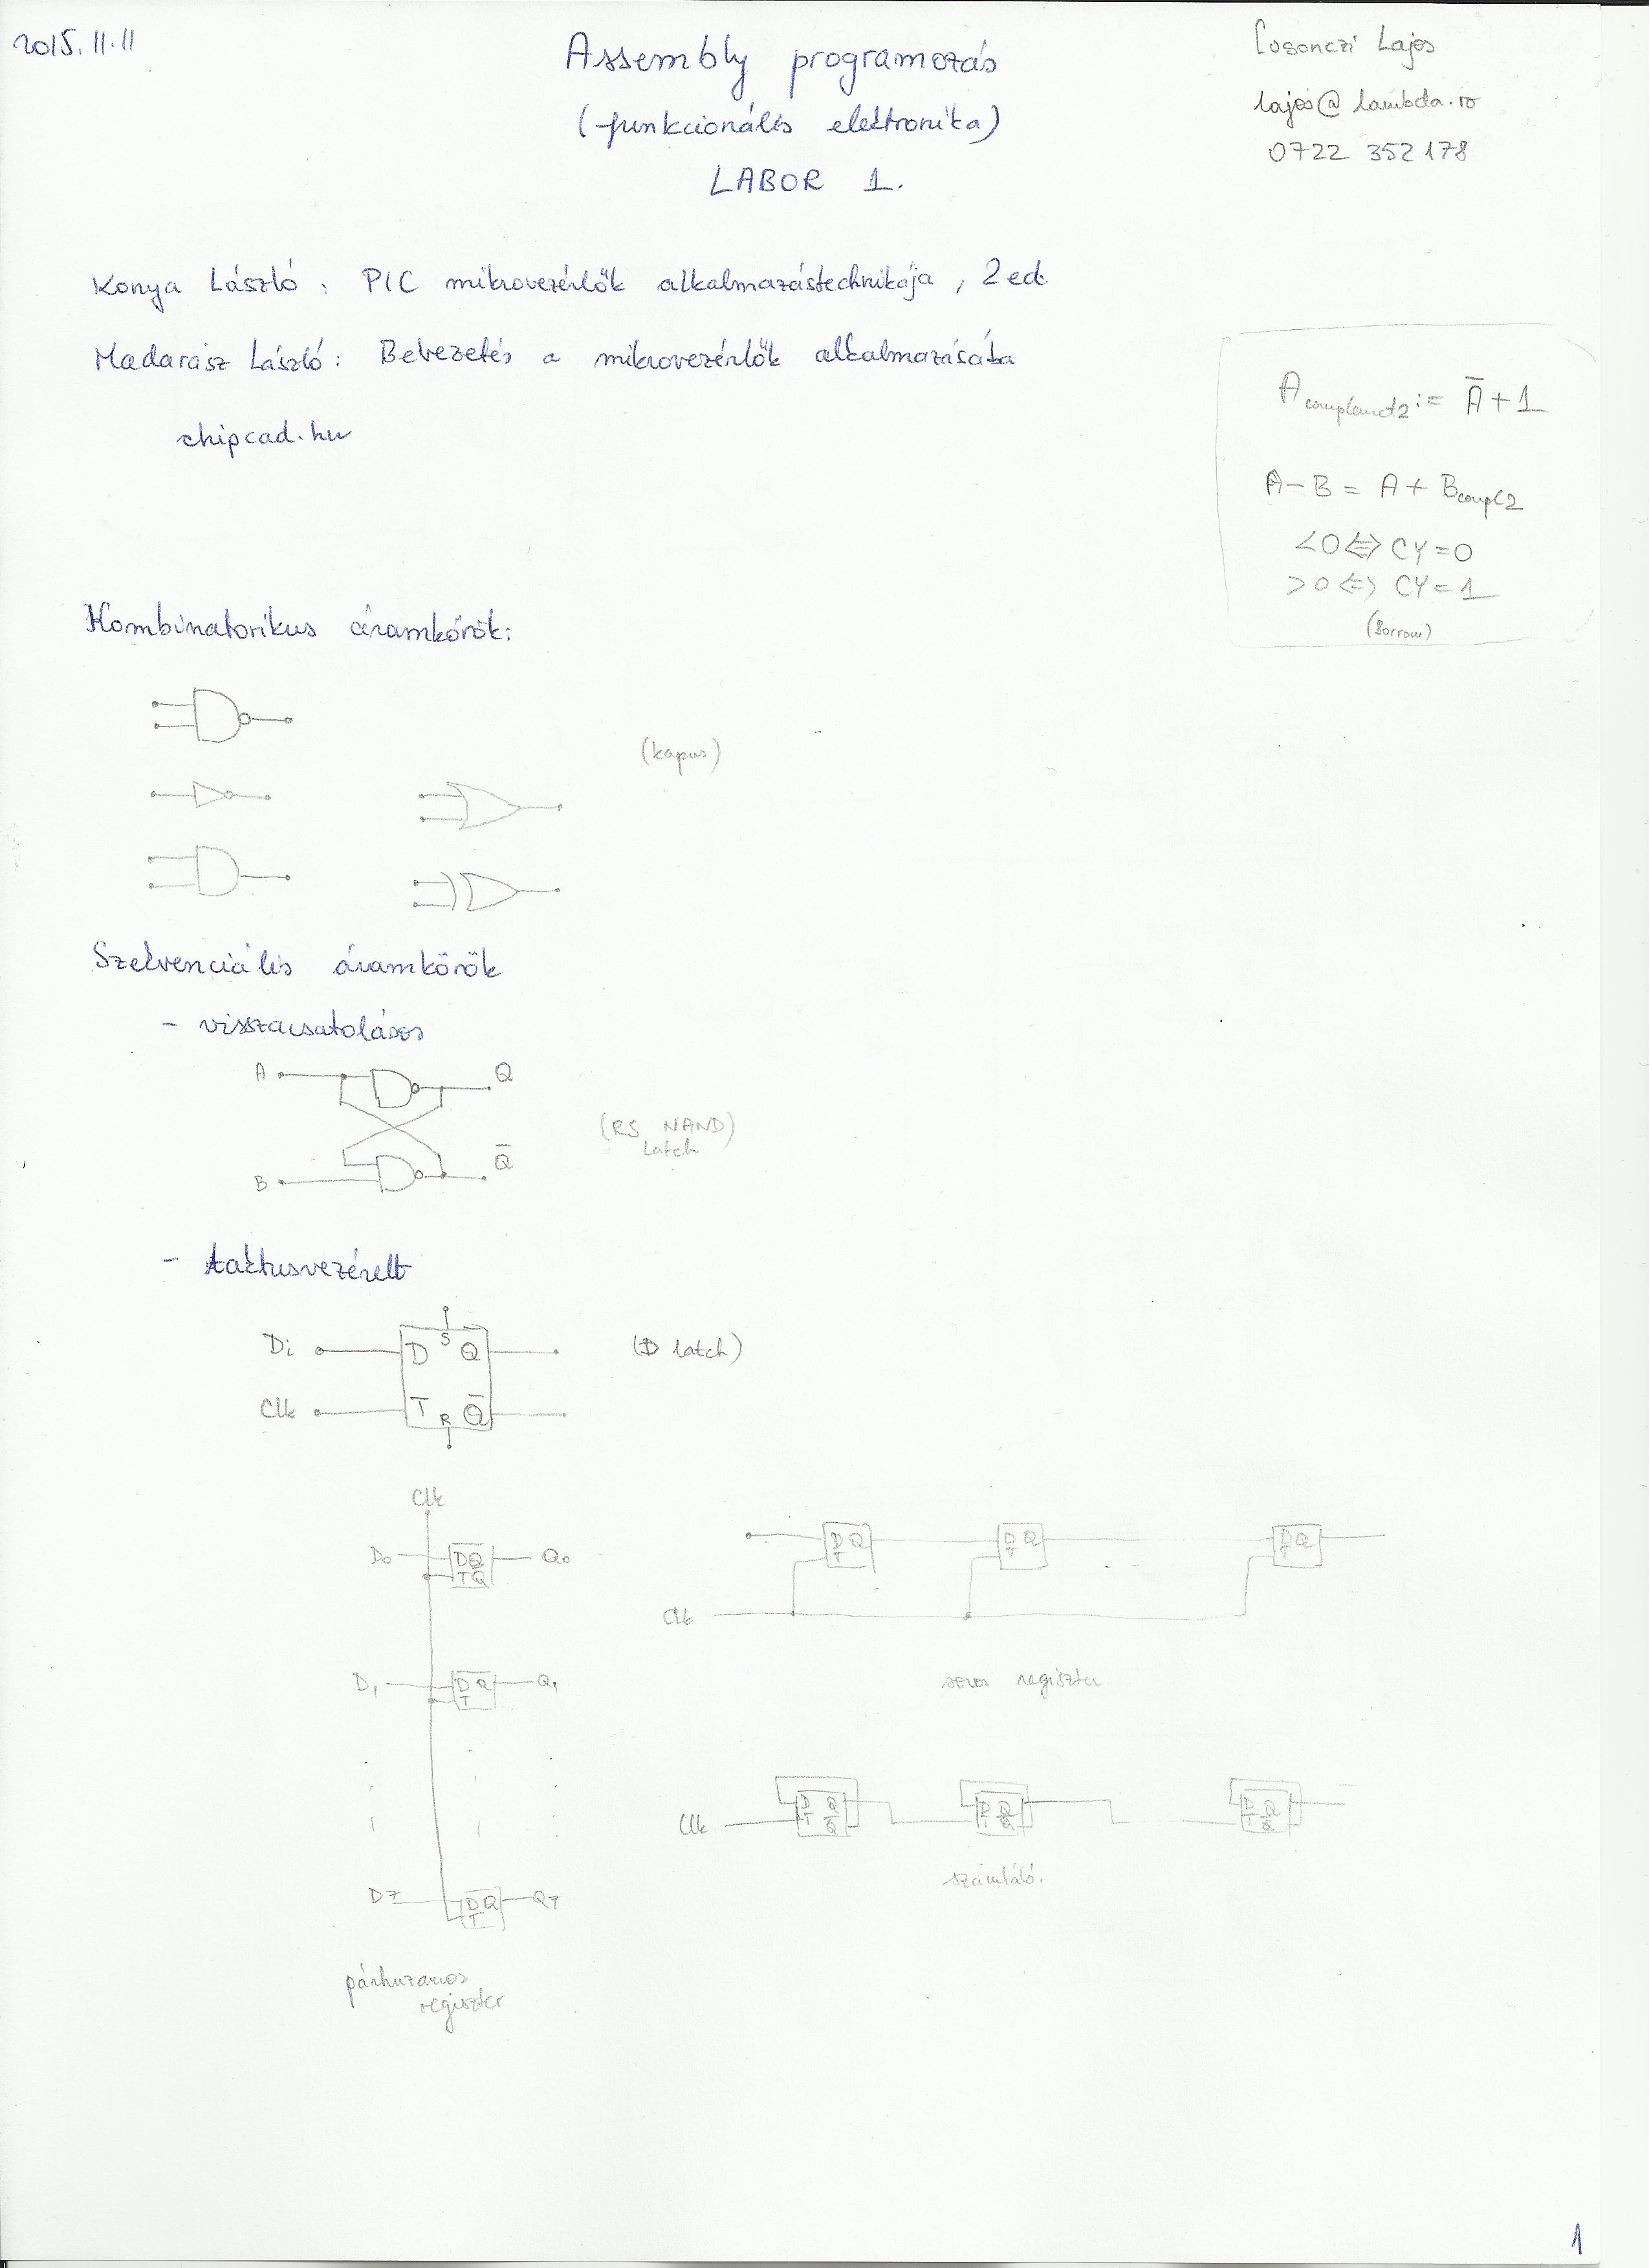 2015.11.11
Assembly programozás
(funkcionális elektronika)
LABOR 1.
Lajos
lajos@lambda.ro
0722 352 178
Konya László: PIC mikrovezérlők alkalmazástechnikája, 2 ed.
Madarász László: Bevezetés a mikrovezérlők alkalmazásába
chipcad.hu
A complemet2 := Ā + 1
A - B = A + B compl2
<0 ⇔ CY = 0
>0 ⇔ CY = 1
(Borrow)
Kombinatorikus áramkörök:
(kapus)
Szekvenciális áramkörök
- visszacsatolásos
A Q
(RS NAND)
latch
B Q̄
- taktusvezérelt
S
Di D Q (D latch)
Clk T R Q̄
Clk
D0 D Q Q0
T Q
D1 D Q Q1
T
D7 D Q Q7
T
párhuzamos
regiszter
D Q D Q D Q
T T T
Clk
soros regiszter
D Q D Q D Q
Clk T Q̄ T Q̄ T Q̄
számláló.
1